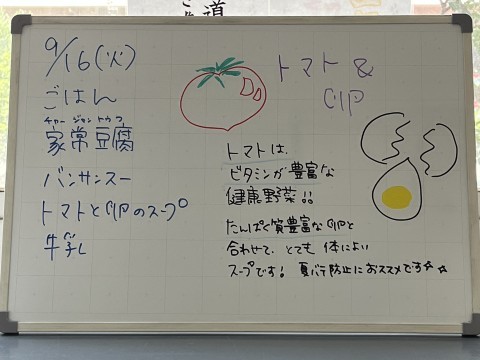 道
9/16(火)
ごはん
チャー ジャン トウフ
家常豆腐
バンサンスー
トマトと卵のスープ
牛乳
トマト &
卵
トマトは、
ビタミンが豊富な
健康野菜!!
たんぱく質豊富な卵と
合わせて、とても体によい
スープです! 夏バテ防止におススメです☆☆